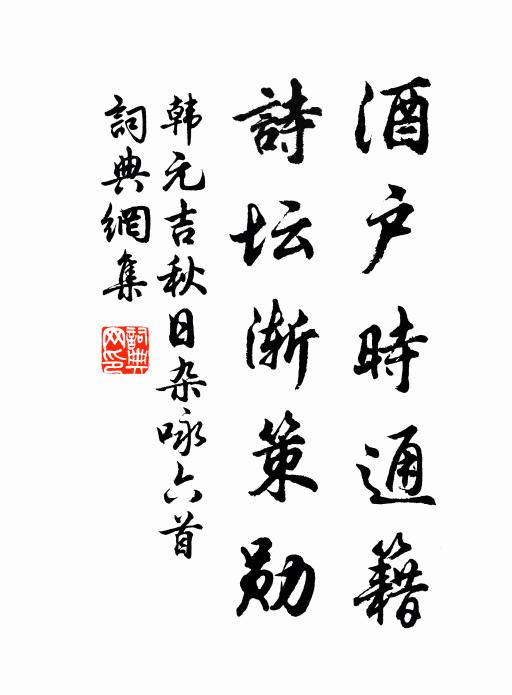 酒户時通籍
詩坛渐策勋
韩元吉秋日杂咏六首
詞典網集
詞典网印